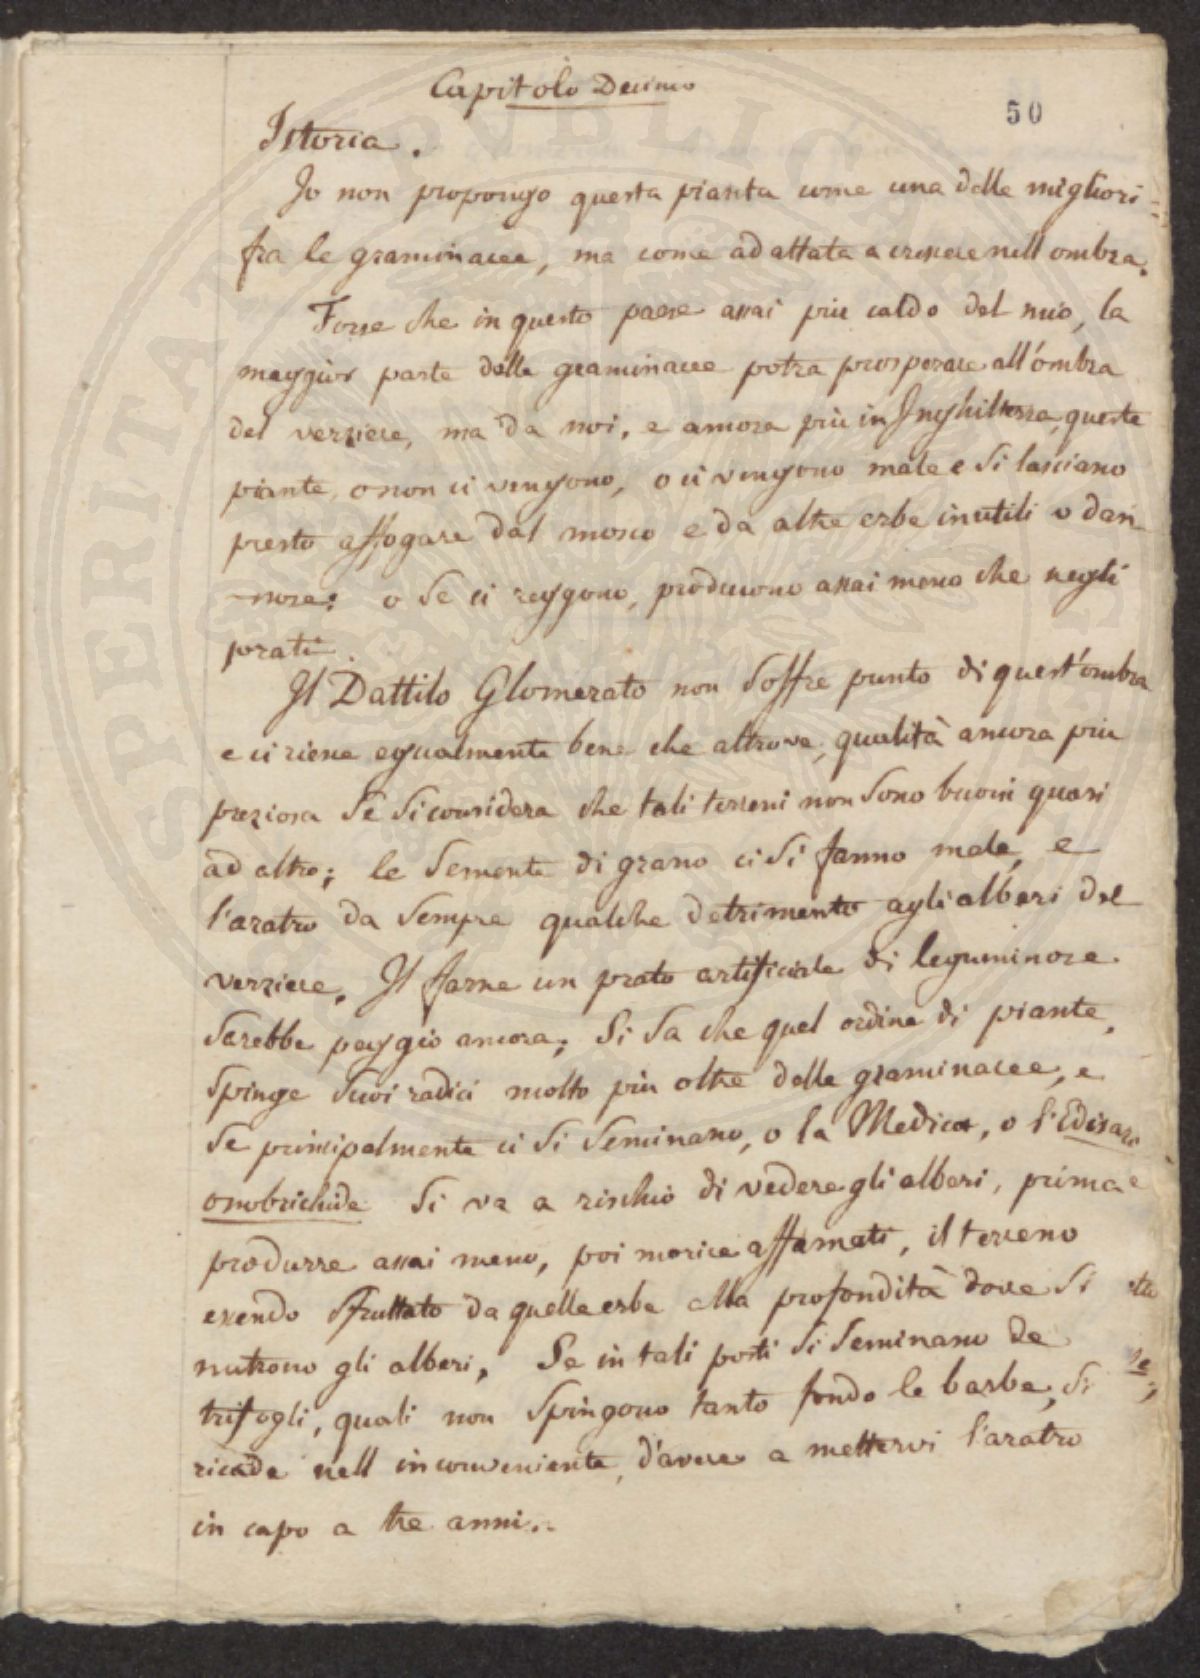 Capitolo Decimo
50
Istoria.
Io non propongo questa pianta come una delle migliori
fra le graminacee, ma come adattata a crescere nell ombra.
Forse che in questo paese assai piu caldo del mio, la
maggior parte delle graminacee potra prosperare all'ombra
del verziere, ma da noi, e ancora più in Inghilterra, queste
piante, o non ci vengono, o ci vengono male e si lasciano
presto affogare dal mosco e da altre erbe inutili o dan-
nose; o se ci reggono, producono assai meno che negli
prati.
Il Dattilo Glomerato non soffre punto di quest'ombra
e ci viene egualmente bene che altrove, qualità ancora piu
preziosa se si considera che tali terreni non sono buoni quasi
ad altro; le semente di grano ci si fanno male, e
l'aratro da sempre qualche detrimento agli alberi del
verziere. Il farne un prato artificiale di leguminose
sarebbe peggio ancora; si sa che quel ordine di piante,
spinge suoi radici molto più oltre delle graminacee, e
se principalmente ci si seminano, o la Medica, o l'Edisaro
onobrichide si va a rischio di vedere gli alberi, prima
produrre assai meno, poi morire affamati, il terreno
essendo sfruttato da quelle erbe alla profondità dove si
nutrono gli alberi. Se in tali posti si seminano de
trifogli, quali non spingono tanto fondo le barbe, si
ricade nell inconveniente, d'avere a mettervi l'aratro
in capo a tre anni.
SPERITAS PVBLICA